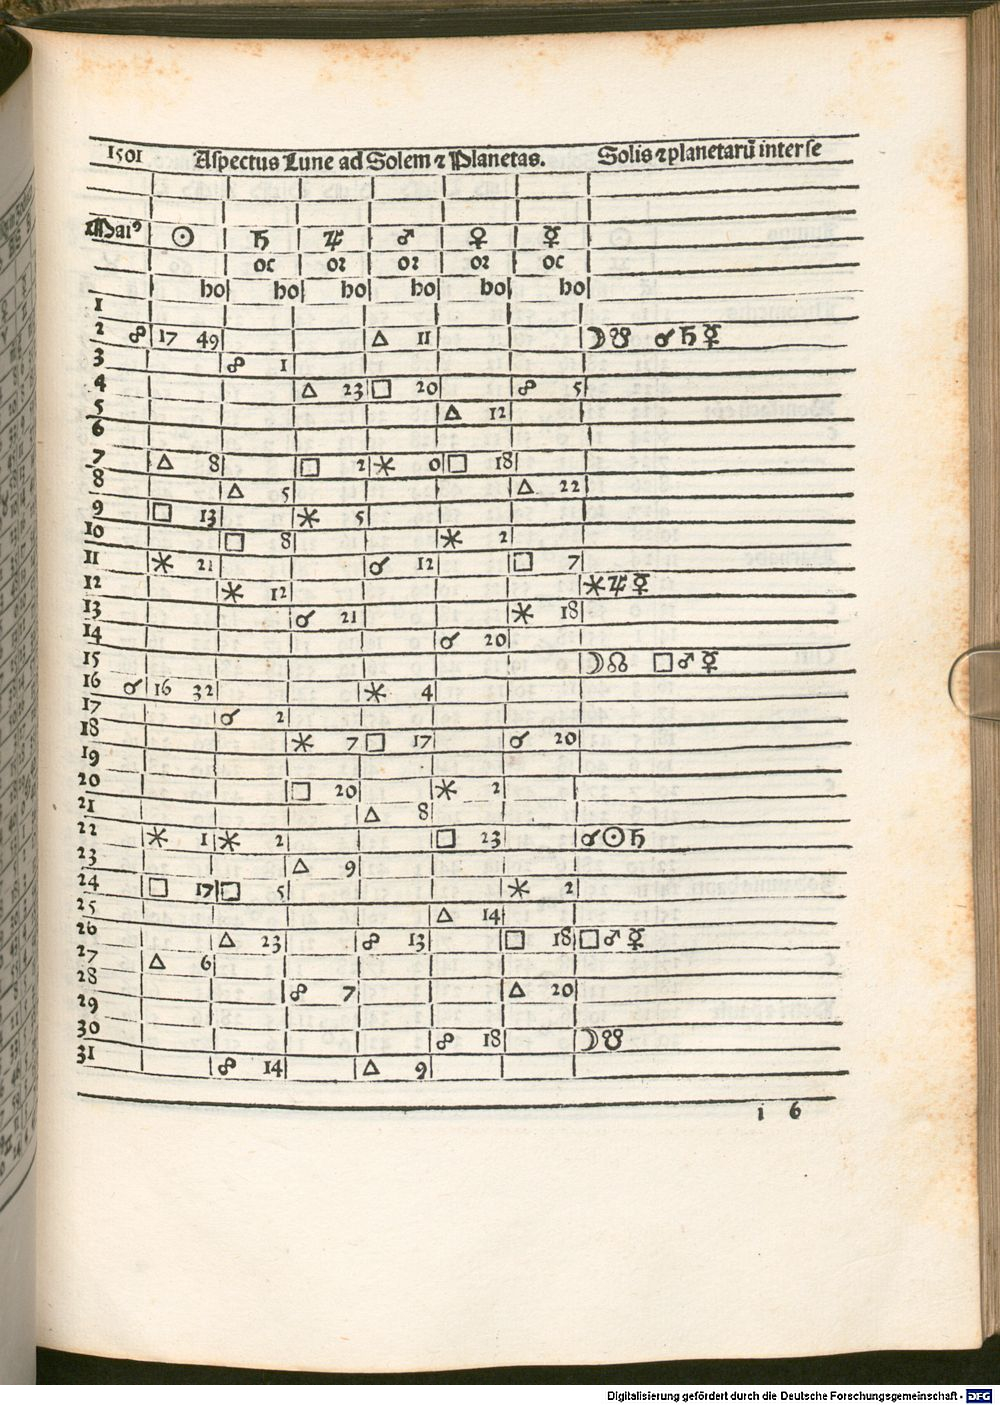 1501 Aspectus Lune ad Solem ⁊ Planetas. Solis ⁊ planetarū inter se
Maiꝰ ☉ ♄ ♃ ♂ ♀ ☿
oc oꝛ oꝛ oꝛ oc
ho ho ho ho ho ho
1
2 ☍ 17 49 △ 11 ☽☋ ☌♄☿
3 ☍ 1
4 △ 23 □ 20 ☍ 5
5 △ 12
6
7 △ 8 □ 2 ⚹ 0 □ 18
8 △ 5 △ 22
9 □ 13 ⚹ 5
10 □ 8 ⚹ 2
11 ⚹ 21 ☌ 12 □ 7
12 ⚹ 12 ⚹♃☿
13 ☌ 21 ⚹ 18
14 ☌ 20
15 ☽☊ □♂☿
16 ☌ 16 32 ⚹ 4
17 ☌ 2
18 ⚹ 7 □ 17 ☌ 20
19
20 □ 20 ⚹ 2
21 △ 8
22 ⚹ 1 ⚹ 2 □ 23 ☌☉♄
23 △ 9
24 □ 17 □ 5 ⚹ 2
25 △ 14
26 △ 23 ☍ 13 □ 18 □♂☿
27 △ 6
28 ☍ 7 △ 20
29
30 ☍ 18 ☽☋
31 ☍ 14 △ 9
i 6
Digitalisierung gefördert durch die Deutsche Forschungsgemeinschaft - DFG